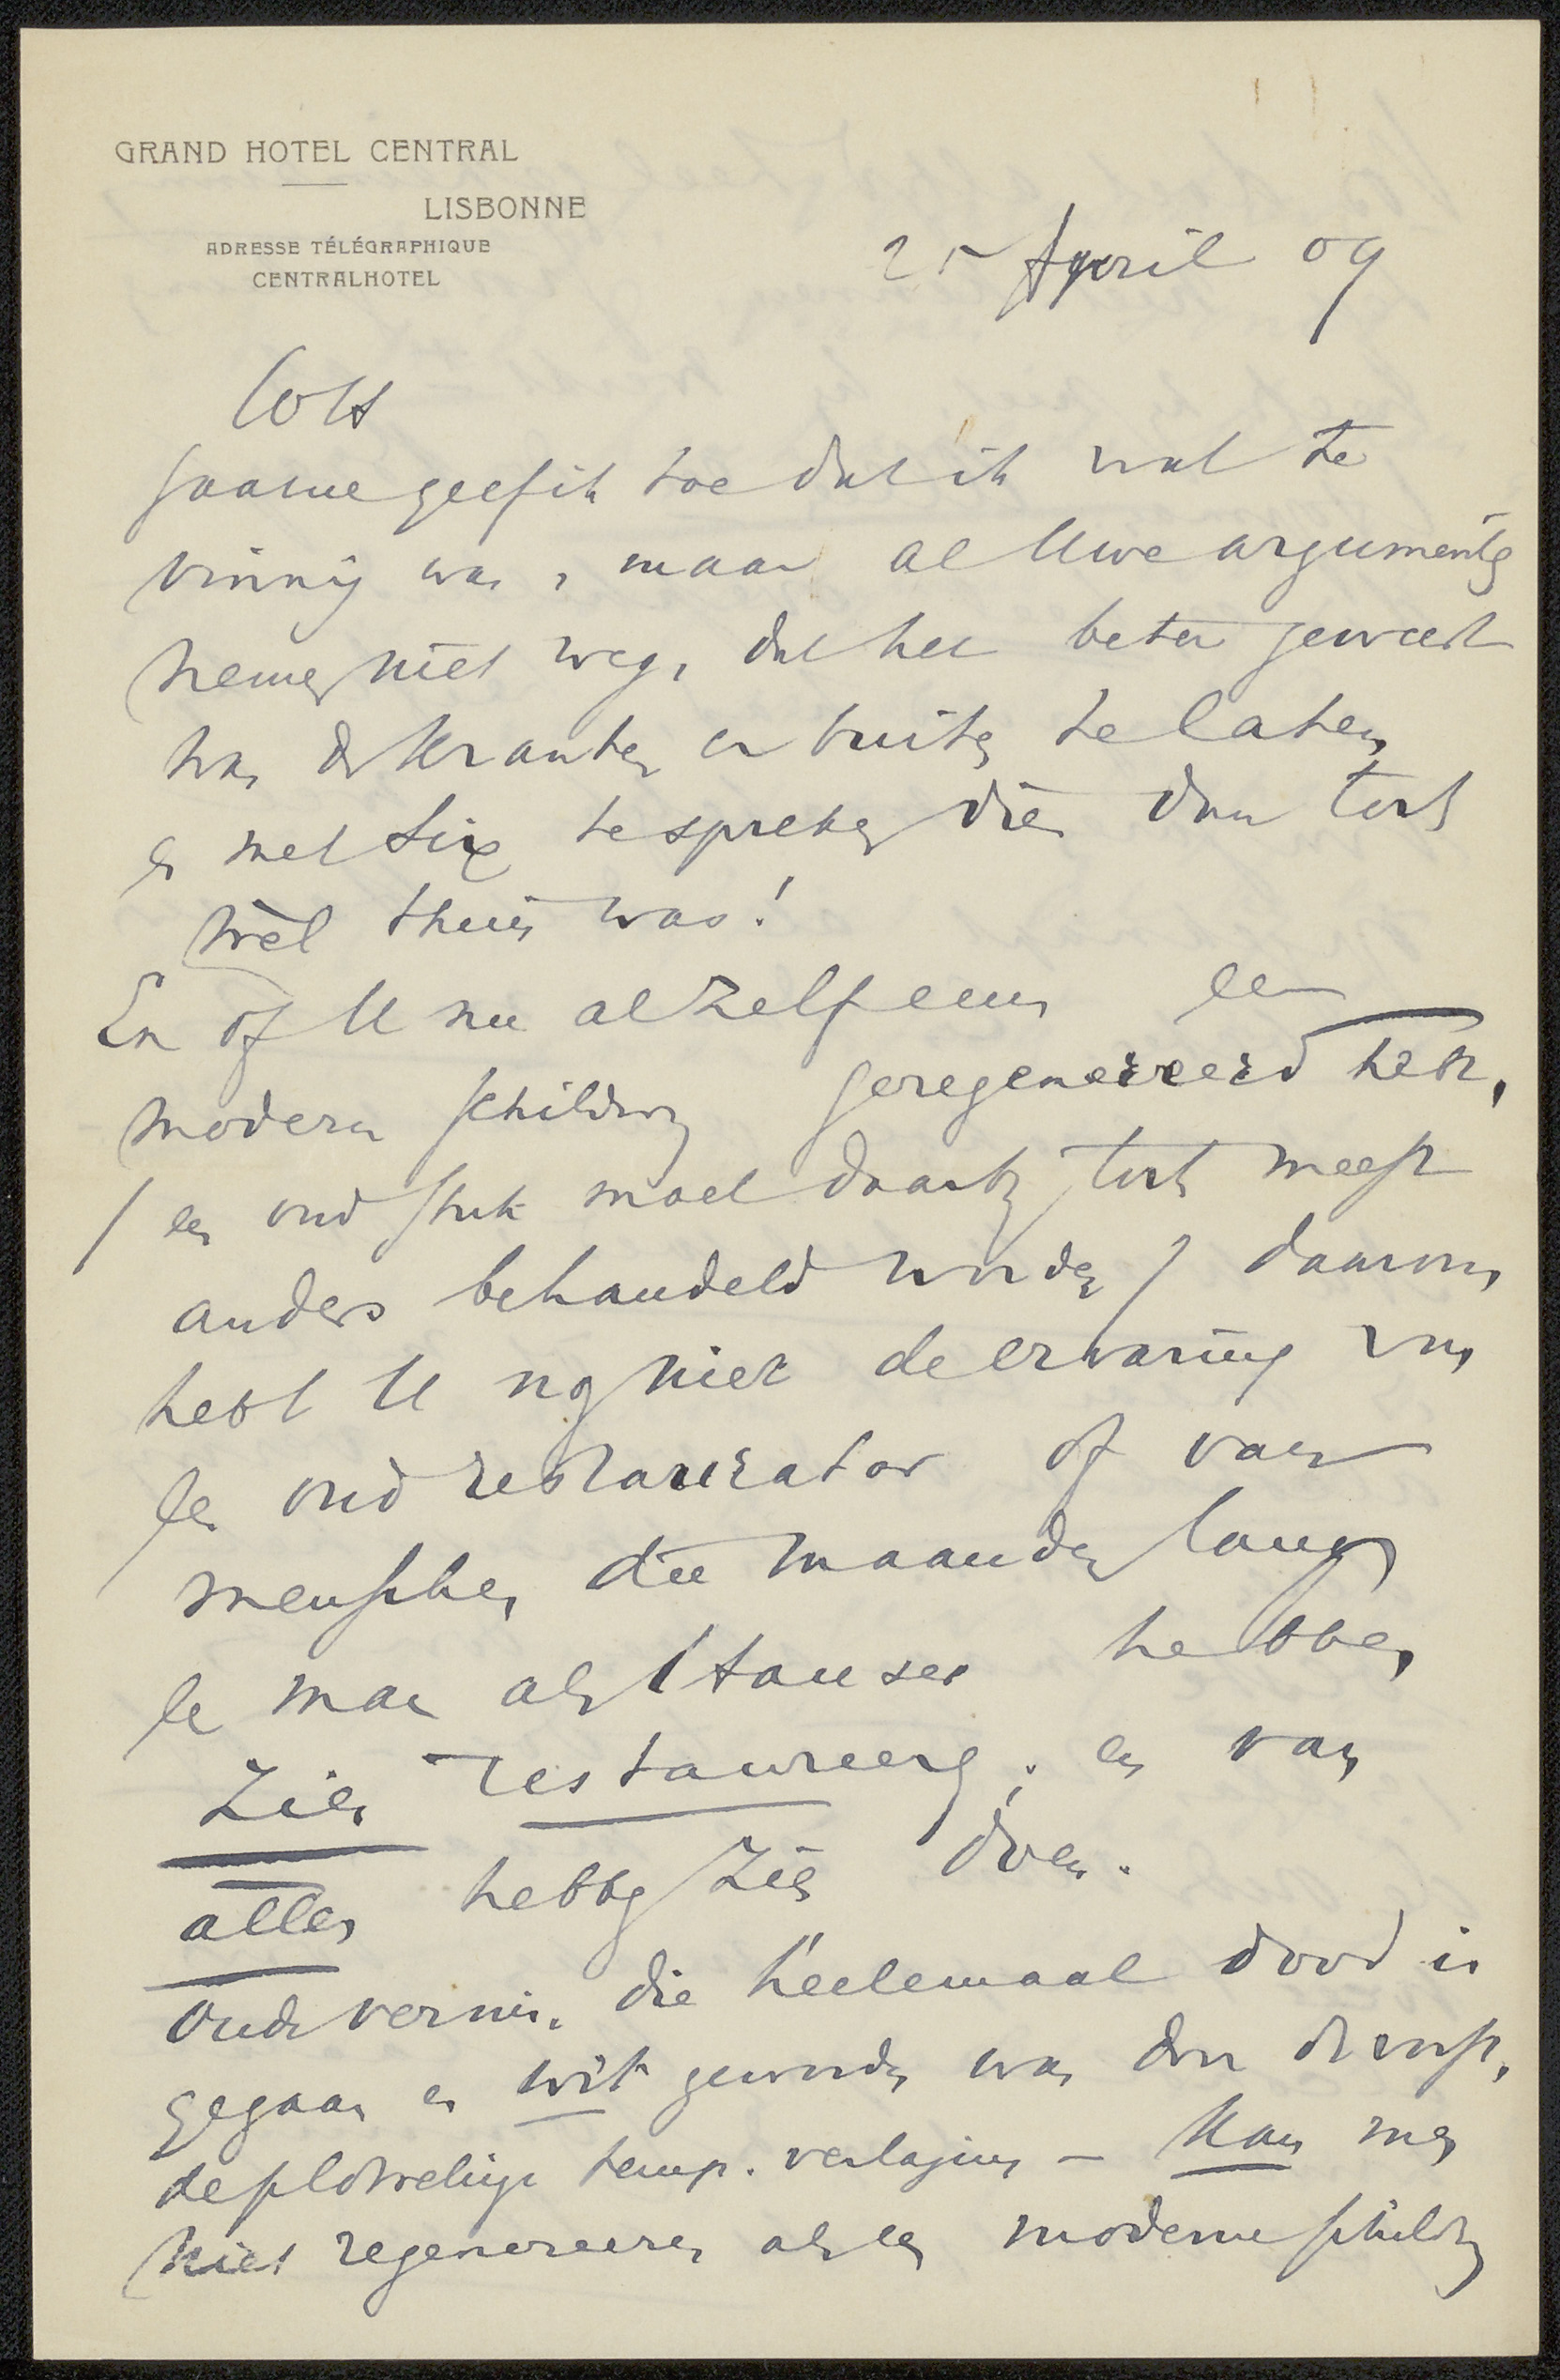 GRAND HOTEL CENTRAL
LISBONNE
ADRESSE TÉLÉGRAPHIQUE
CENTRALHOTEL
25 April 09
Gaarne geef ik toe dat ik wat te
vinnig was, maar al Uwe argumenten
nemen niet weg, dat het beter geweest
was de kranten er buiten te laten,
en met Six te spreken die dan toch
wèl thuis was!
En of U nu al zelf eens een
modern schilderij geregenereerd hebt,
(een oud stuk moet daarbij toch meest
anders behandeld worden) daarom
hebt U nog niet de ervaring van
een oud restaurator of van
menschen die maanden lang
een man als Hauser hebben
zien restaureeren; en van
allen hebben zien doen.
Oude vernis, die heelemaal dood is
gegaan en wit geworden was door de vorst,
de plotselinge temp. verlaging — kan men
niet regenereeren als een moderne schilderij